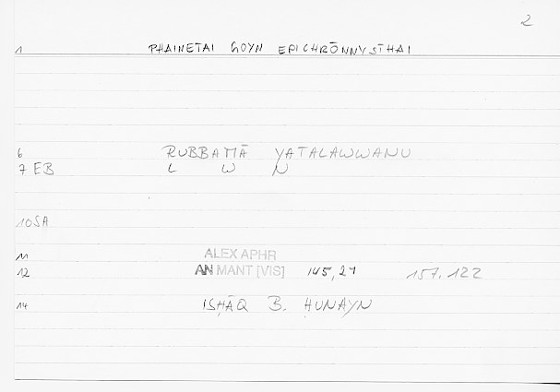 2
1 PHAINETAI GOYN EPICHRŌNNYSTHAI
6 RUBBAMĀ YATALAWWANU
7 EB L W N
10SA
11 ALEX APHR
12 AN MANT [VIS] 145,21 157.122
14 ISḤĀQ B. ḤUNAYN